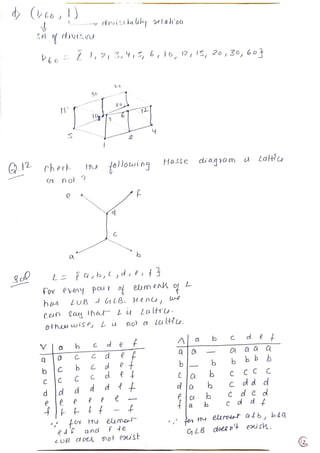 d) (D60, 1)
divisibility relation
set of divisors
D60 = { 1, 2, 3, 4, 5, 6, 10, 12, 15, 20, 30, 60}
60
30
20
15
12
10
3
6
5
1
2
4
Q.12 Check the following Hasse diagram is Lattice
or not ?
e
f
d
c
a
b
Sol L = { a, b, c, d, e, f }
For every pair of elements of L
has LUB & GLB. Hence, we
can say that L is Lattice.
otherwise, L is not a Lattice.
V a b c d e f
a a c c d e f
b c b c d e f
c c c c d e f
d d d d d e f
e e e e e e –
f f f f f – f
∵ for the element
e & f and f & e
LUB does not exist
Λ a b c d e f
a a – a a a a
b – b b b b b
c a b c c c c
d a b c d d d
e a b c d e d
f a b c d d f
∵ for the element a & b, b & a
GLB doesn't exist.